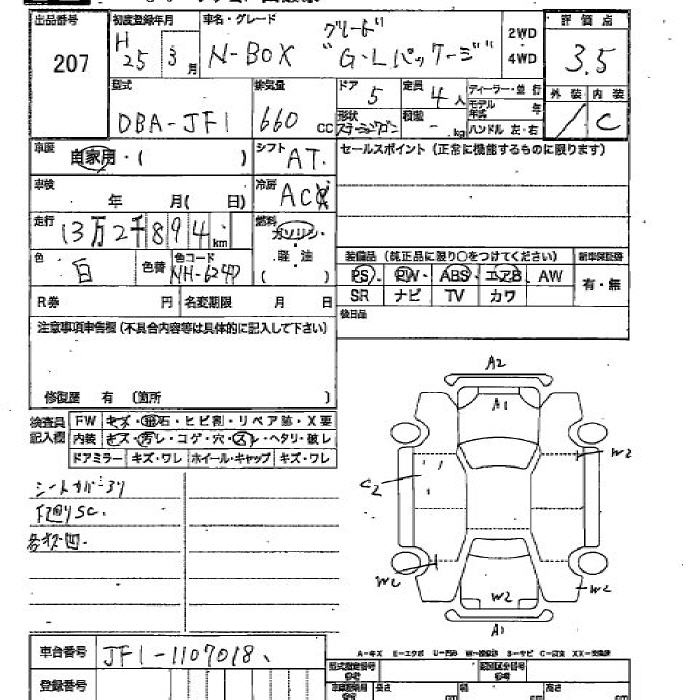 出品番号 初度登録年月 車名・グレード グレード 2WD 4WD 評価点
207 H 25 3月 N-BOX "G・Lパッケージ" 3.5
外装 内装
型式 排気量 ドア 定員 ディーラー・並行
DBA-JF1 660 cc 5 4人 モデル年式 年 C
形状 ステーションワゴン 積載 - kg ハンドル 左・右
車歴 自家用・( ) シフト AT. セールスポイント(正常に機能するものに限ります)
車検 年 月( 日) 冷房 AC
走行 13万2千894km 燃料 ガソリン・
軽油
色 白 色替 色コード NH-624P ( )
装備品(純正品に限り○をつけてください) 新車保証書
PS PW・ ABS・ エアB AW 有・無
R券 円 名変期限 月 日 SR ナビ TV カワ
注意事項申告欄(不具合内容等は具体的に記入して下さい) 後日品
修復歴 有 (箇所 )
検査員記入欄 FW キズ・飛石・ヒビ割・リペア跡・X要
内装 キズ・汚レ・コゲ・穴・スレ・ヘタリ・破レ
ドアミラー キズ・ワレ ホイール・キャップ キズ・ワレ
A2
A1
W2
C2
シートカバー
下廻りSC.
W2
W2
A1
A-キズ E-エクボ U-凹み W-補修跡 S-サビ C-腐食 XX-交換済
車台番号 JF1-1107018
登録番号
型式指定番号 類別区分番号
長さ cm 幅 cm 高さ cm